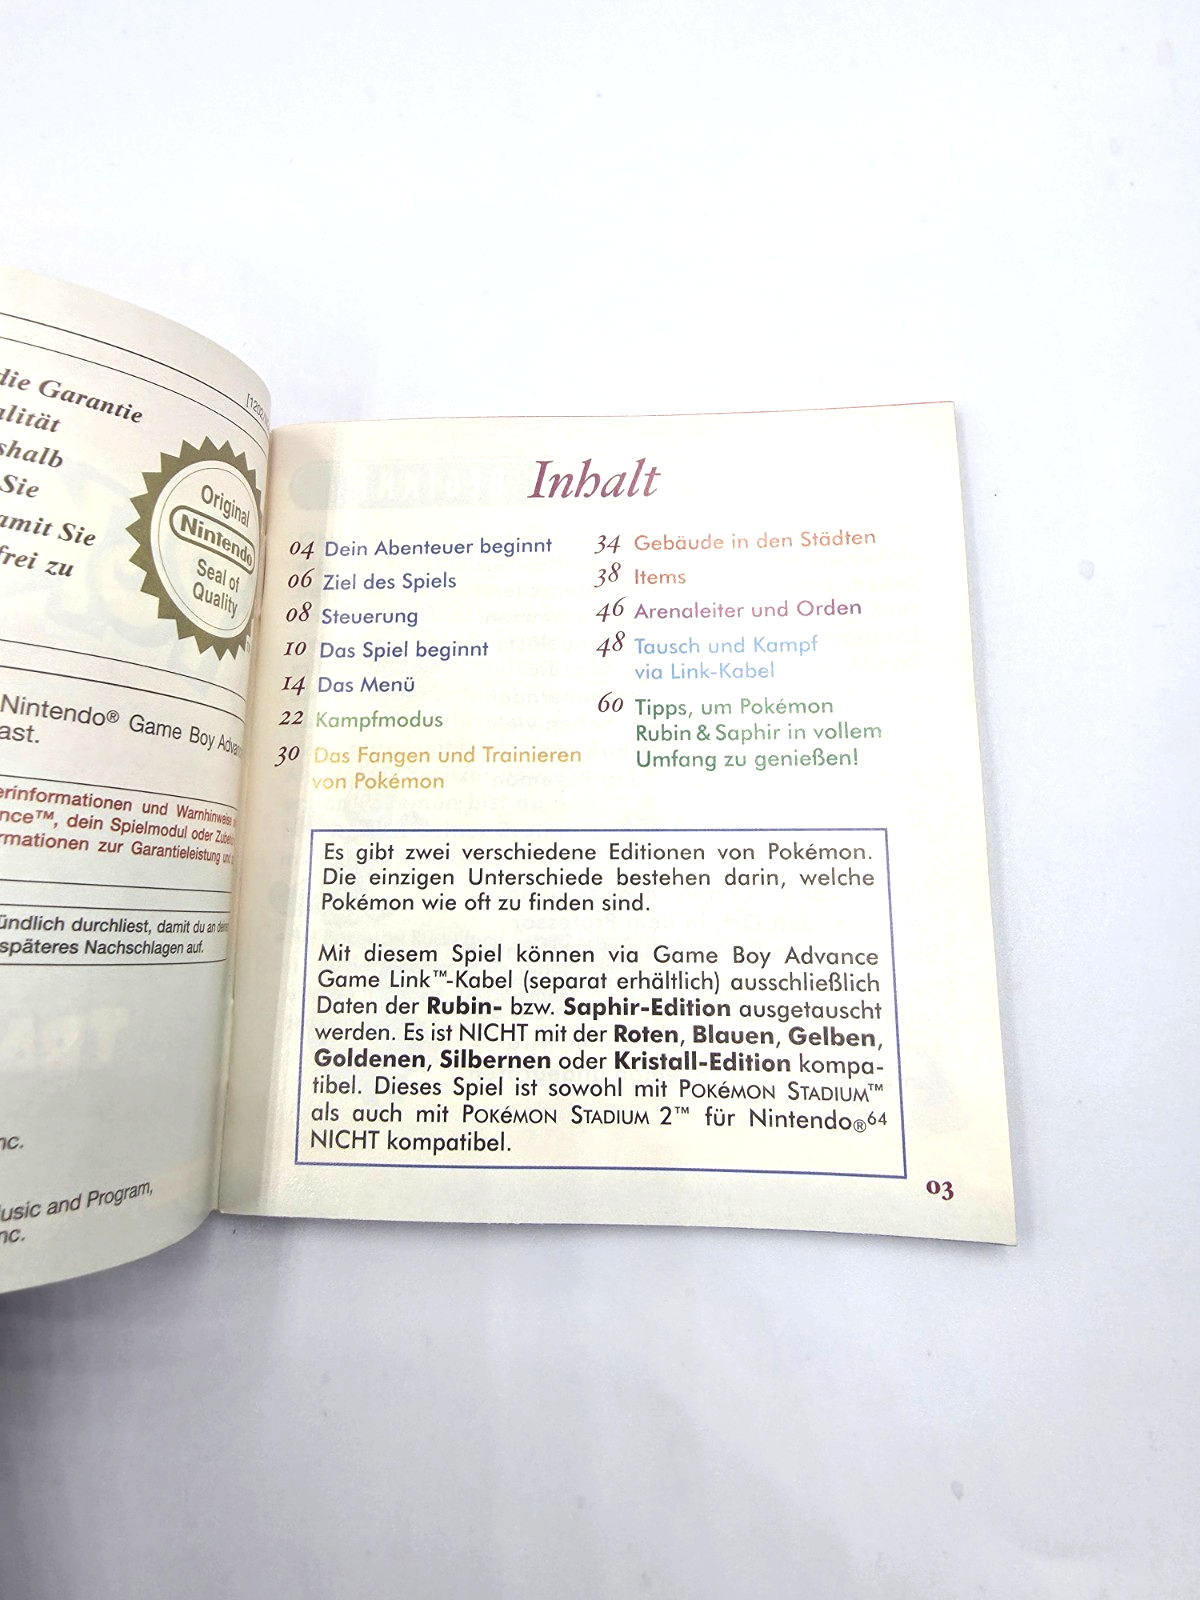 die Garantie
Sie
damit Sie
frei zu
Original
Nintendo
Seal of
Quality
Nintendo® Game Boy
ast.
erinformationen und Warnhinweise
nce™, dein Spielmodul oder
rmationen zur Garantieleistung und
ündlich durchliest, damit du an
späteres Nachschlagen auf.
nc.
usic and Program,
nc.
Inhalt
04 Dein Abenteuer beginnt
06 Ziel des Spiels
08 Steuerung
10 Das Spiel beginnt
14 Das Menü
22 Kampfmodus
30 Das Fangen und Trainieren
von Pokémon
34 Gebäude in den Städten
38 Items
46 Arenaleiter und Orden
48 Tausch und Kampf
via Link-Kabel
60 Tipps, um Pokémon
Rubin & Saphir in vollem
Umfang zu genießen!
Es gibt zwei verschiedene Editionen von Pokémon.
Die einzigen Unterschiede bestehen darin, welche
Pokémon wie oft zu finden sind.
Mit diesem Spiel können via Game Boy Advance
Game Link™-Kabel (separat erhältlich) ausschließlich
Daten der Rubin- bzw. Saphir-Edition ausgetauscht
werden. Es ist NICHT mit der Roten, Blauen, Gelben,
Goldenen, Silbernen oder Kristall-Edition kompa-
tibel. Dieses Spiel ist sowohl mit POKéMON STADIUM™
als auch mit POKéMON STADIUM 2™ für Nintendo®64
NICHT kompatibel.
03